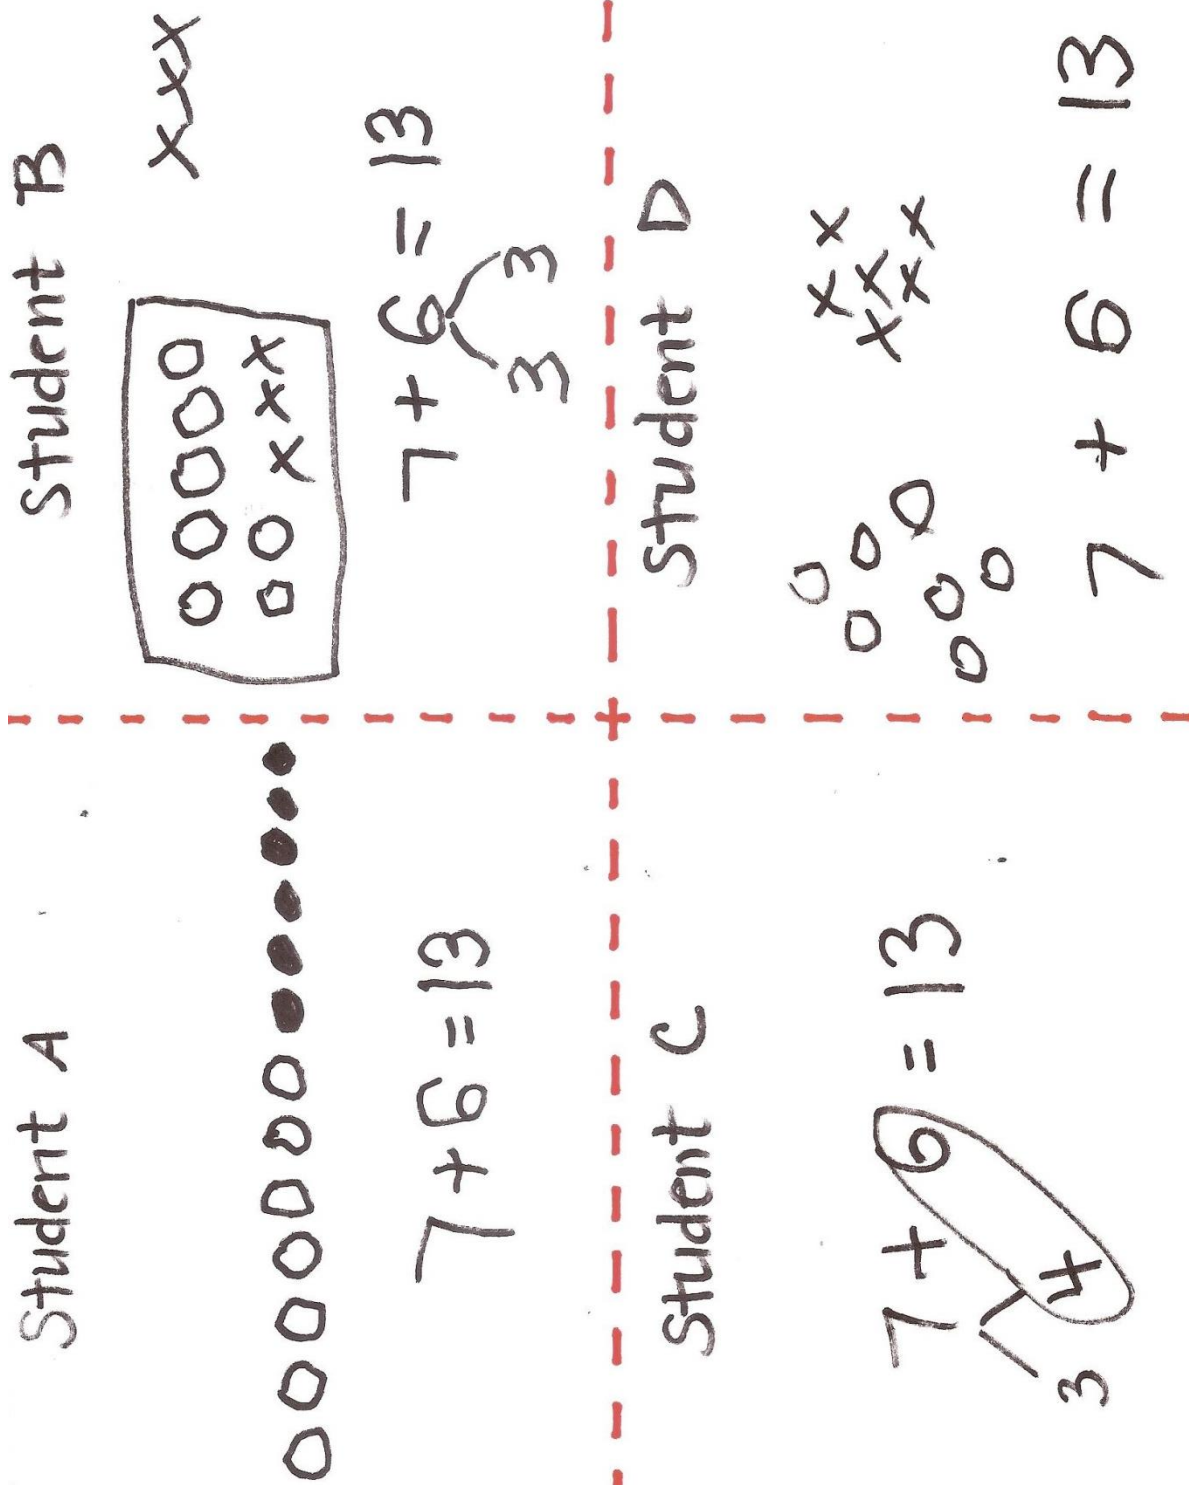 Student A
7 + 6 = 13
Student B
xxx
xxx
7 + 6 = 13
3 3
Student C
7 + 6 = 13
3 4
Student D
x x
x
x x x
7 + 6 = 13